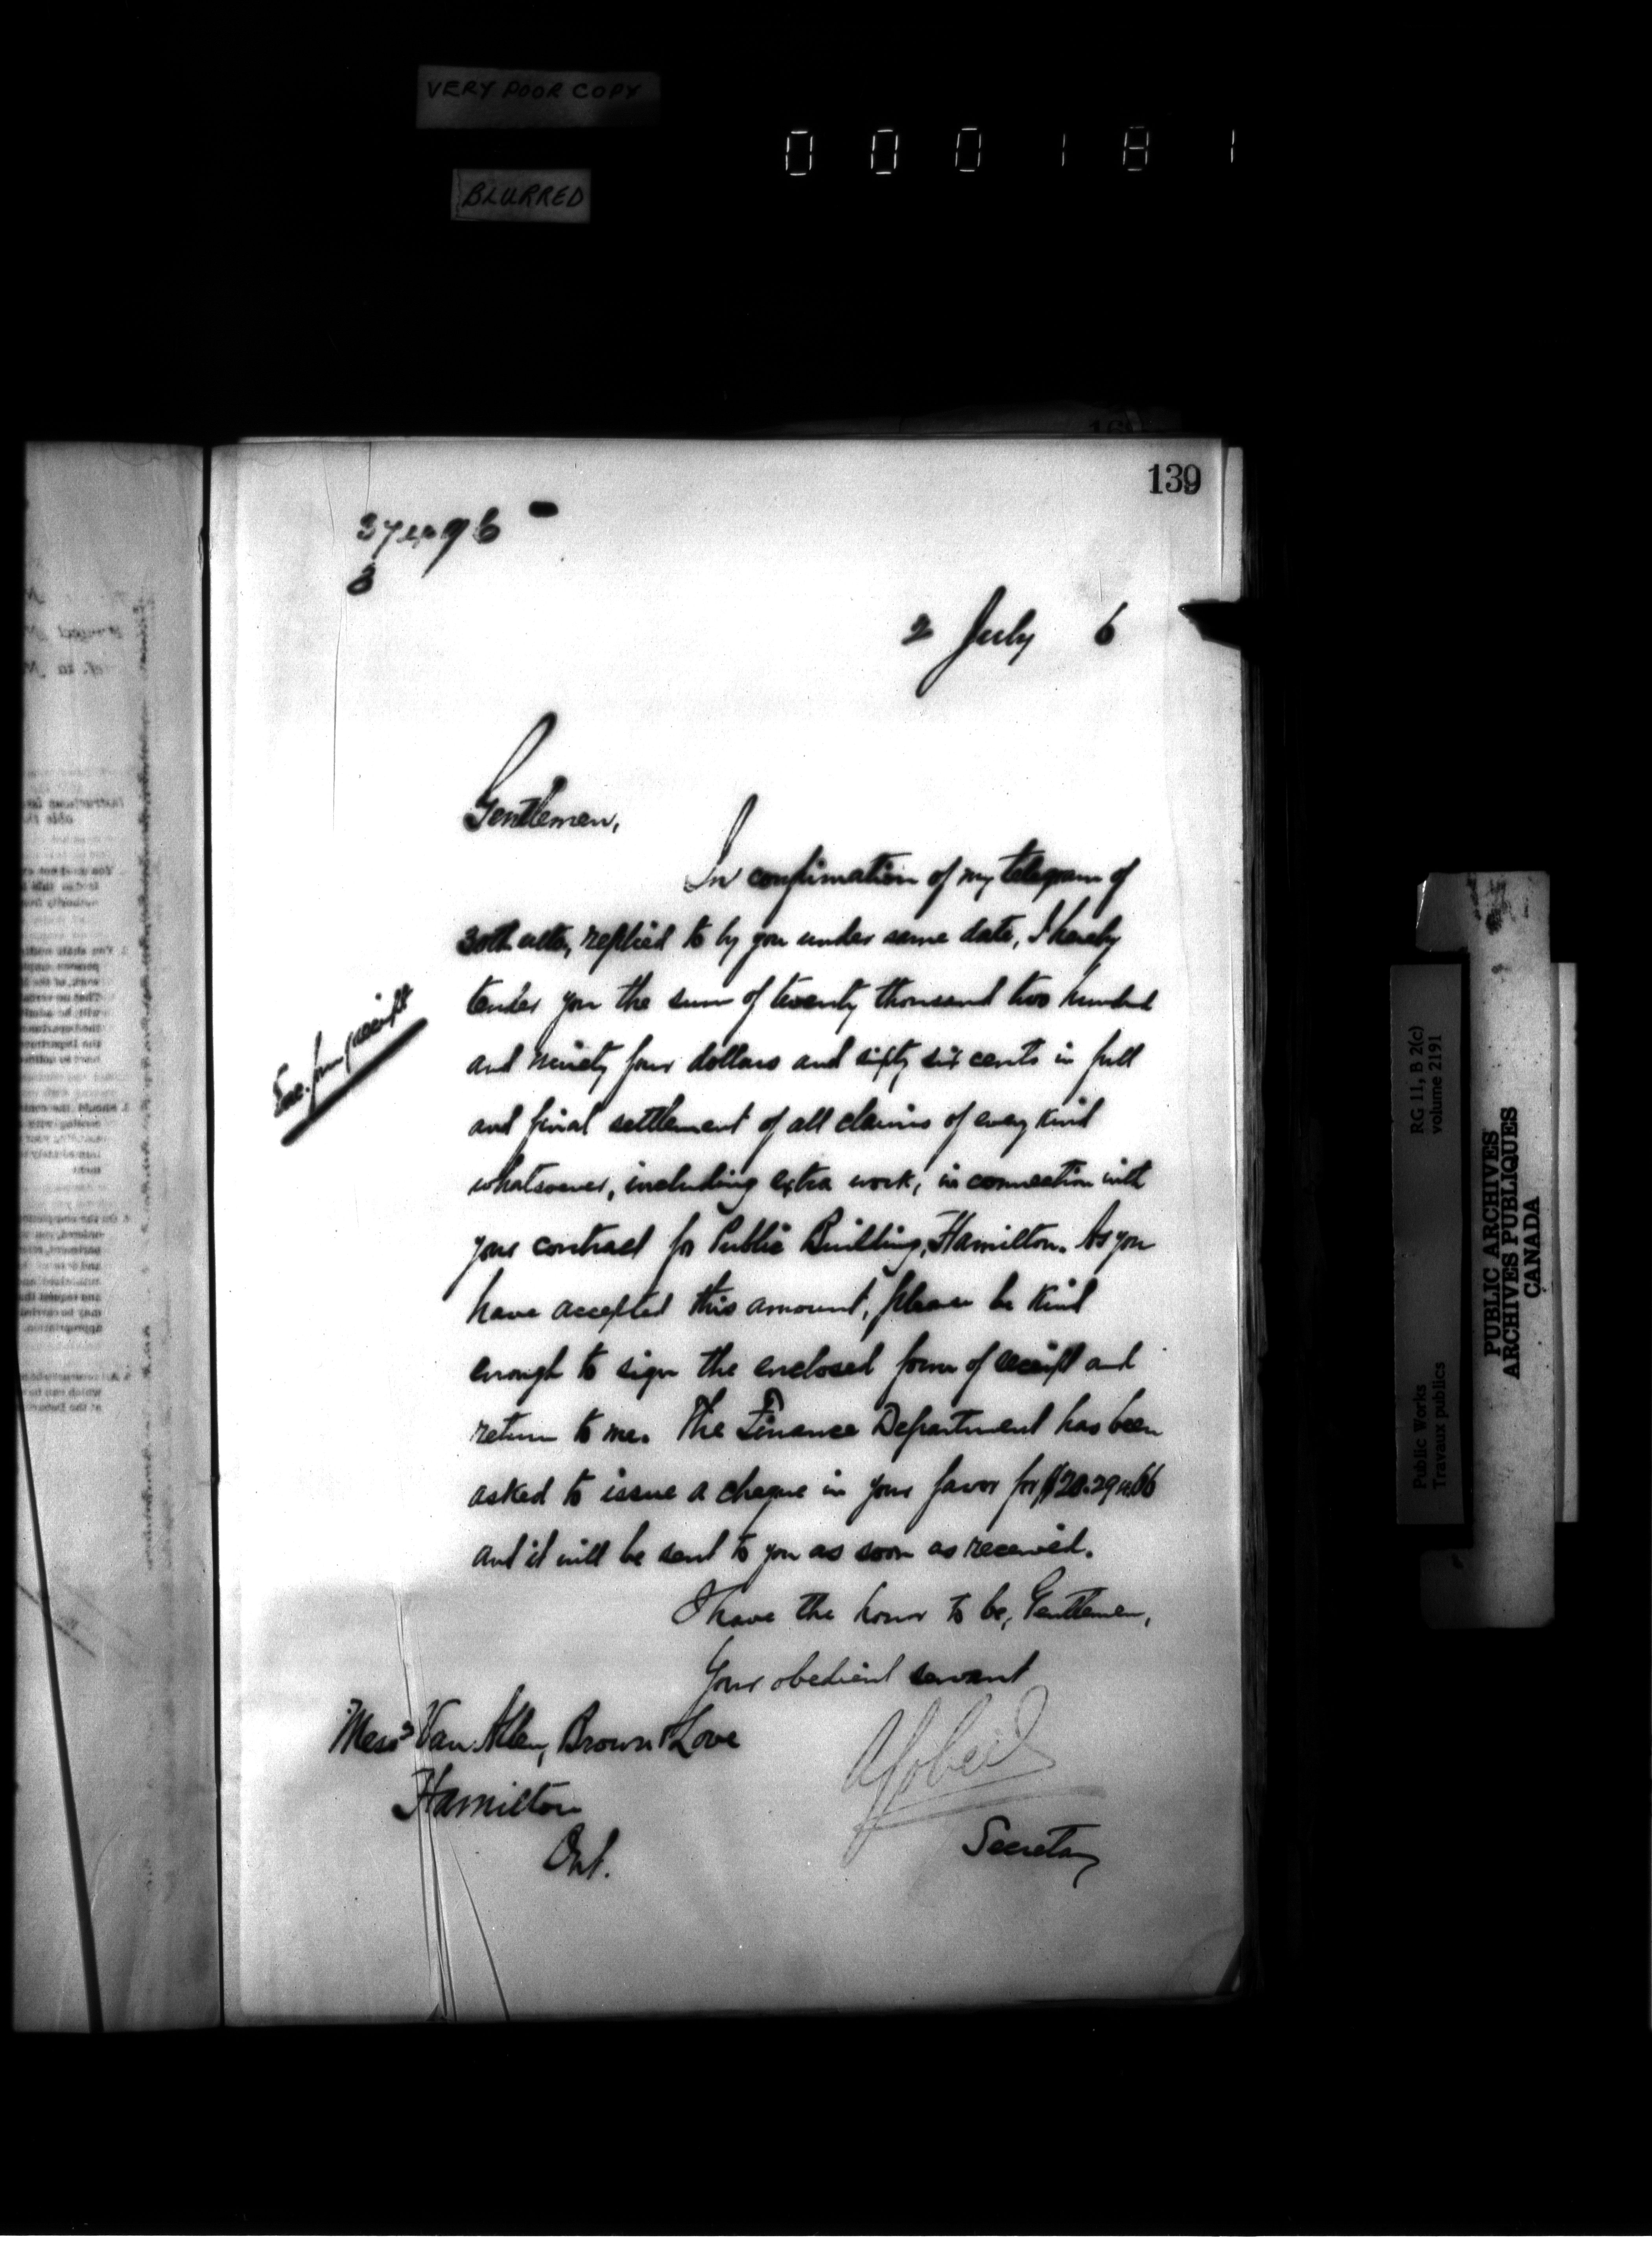 VERY POOR COPY
BLURRED
000181
139
2 July 6
Gentlemen,
In confirmation of my telegram of
30th ulto, replied to by you under same date, I hereby
tender you the sum of twenty thousand two hundred
and ninety four dollars and sixty six cents in full
and final settlement of all claims of every kind
whatsoever, including extra work, in connection with
your contract for Public Building, Hamilton. As you
have accepted this amount, please be kind
enough to sign the enclosed form of receipt and
return to me. The Finance Department has been
asked to issue a cheque in your favor for $20.294.66
and it will be sent to you as soon as received.
I have the honor to be, Gentlemen,
Your obedient servant
Secretary
Enc. form receipt
Messrs Van Allen, Brown & Love
Hamilton
Ont.
Public Works
Travaux publics
RG 11, B 2(c)
volume 2191
PUBLIC ARCHIVES
ARCHIVES PUBLIQUES
CANADA